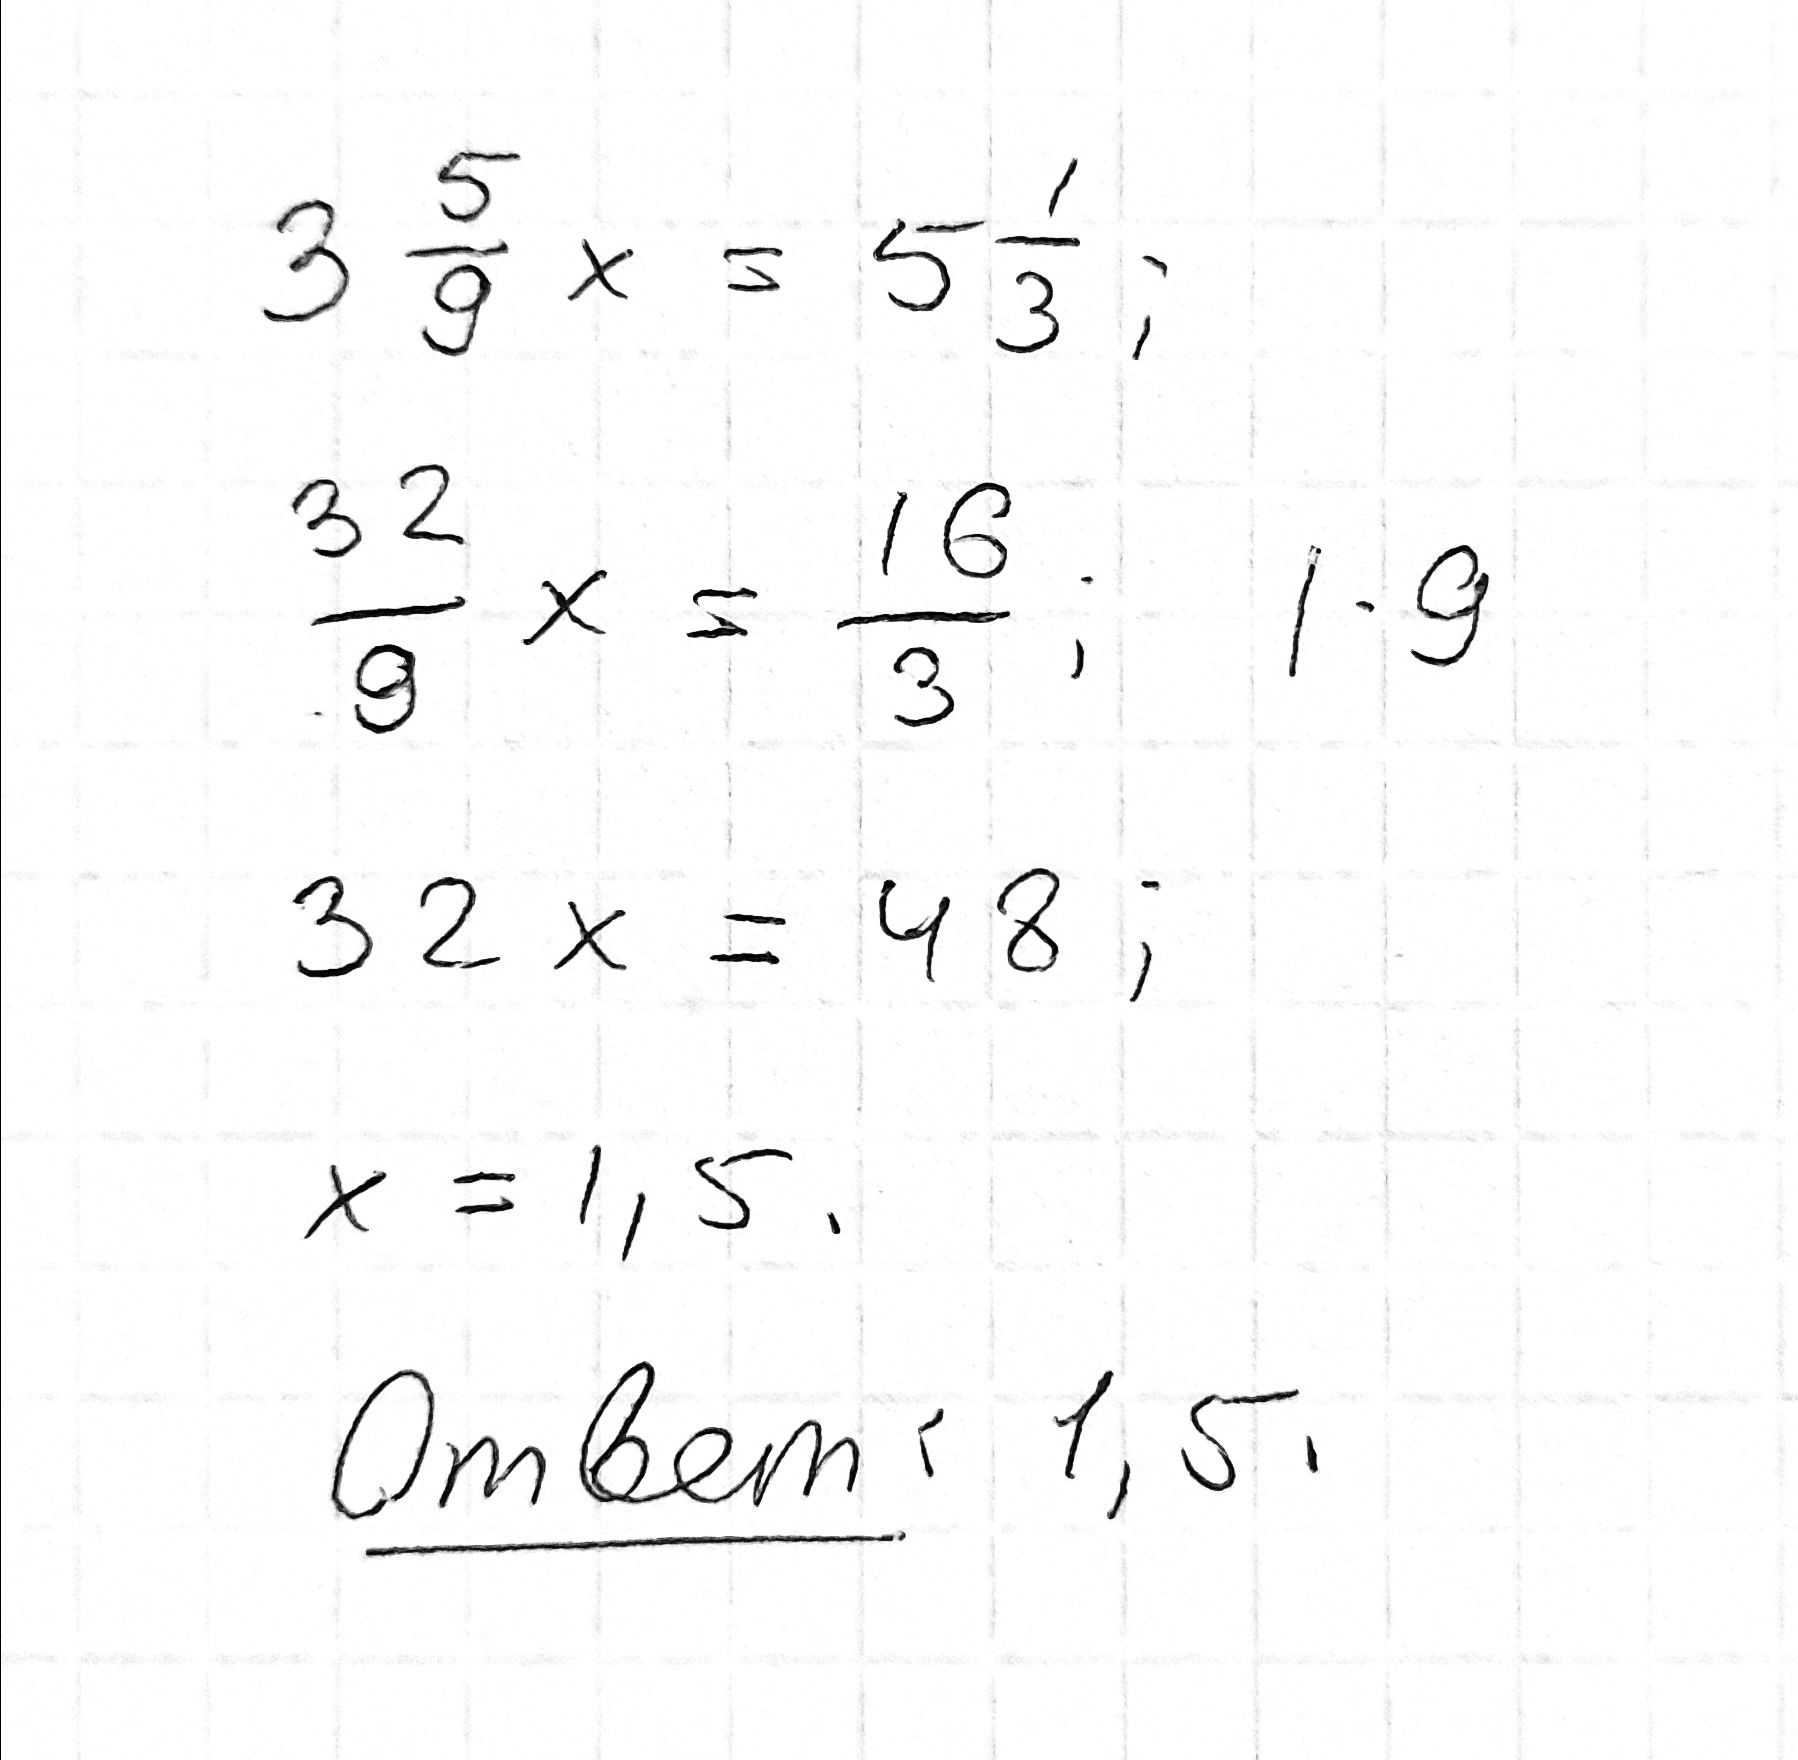 3 5/9 x = 5 1/3;
32/9 x = 16/3; | · 9
32x = 48;
x = 1,5.
Ответ: 1,5.